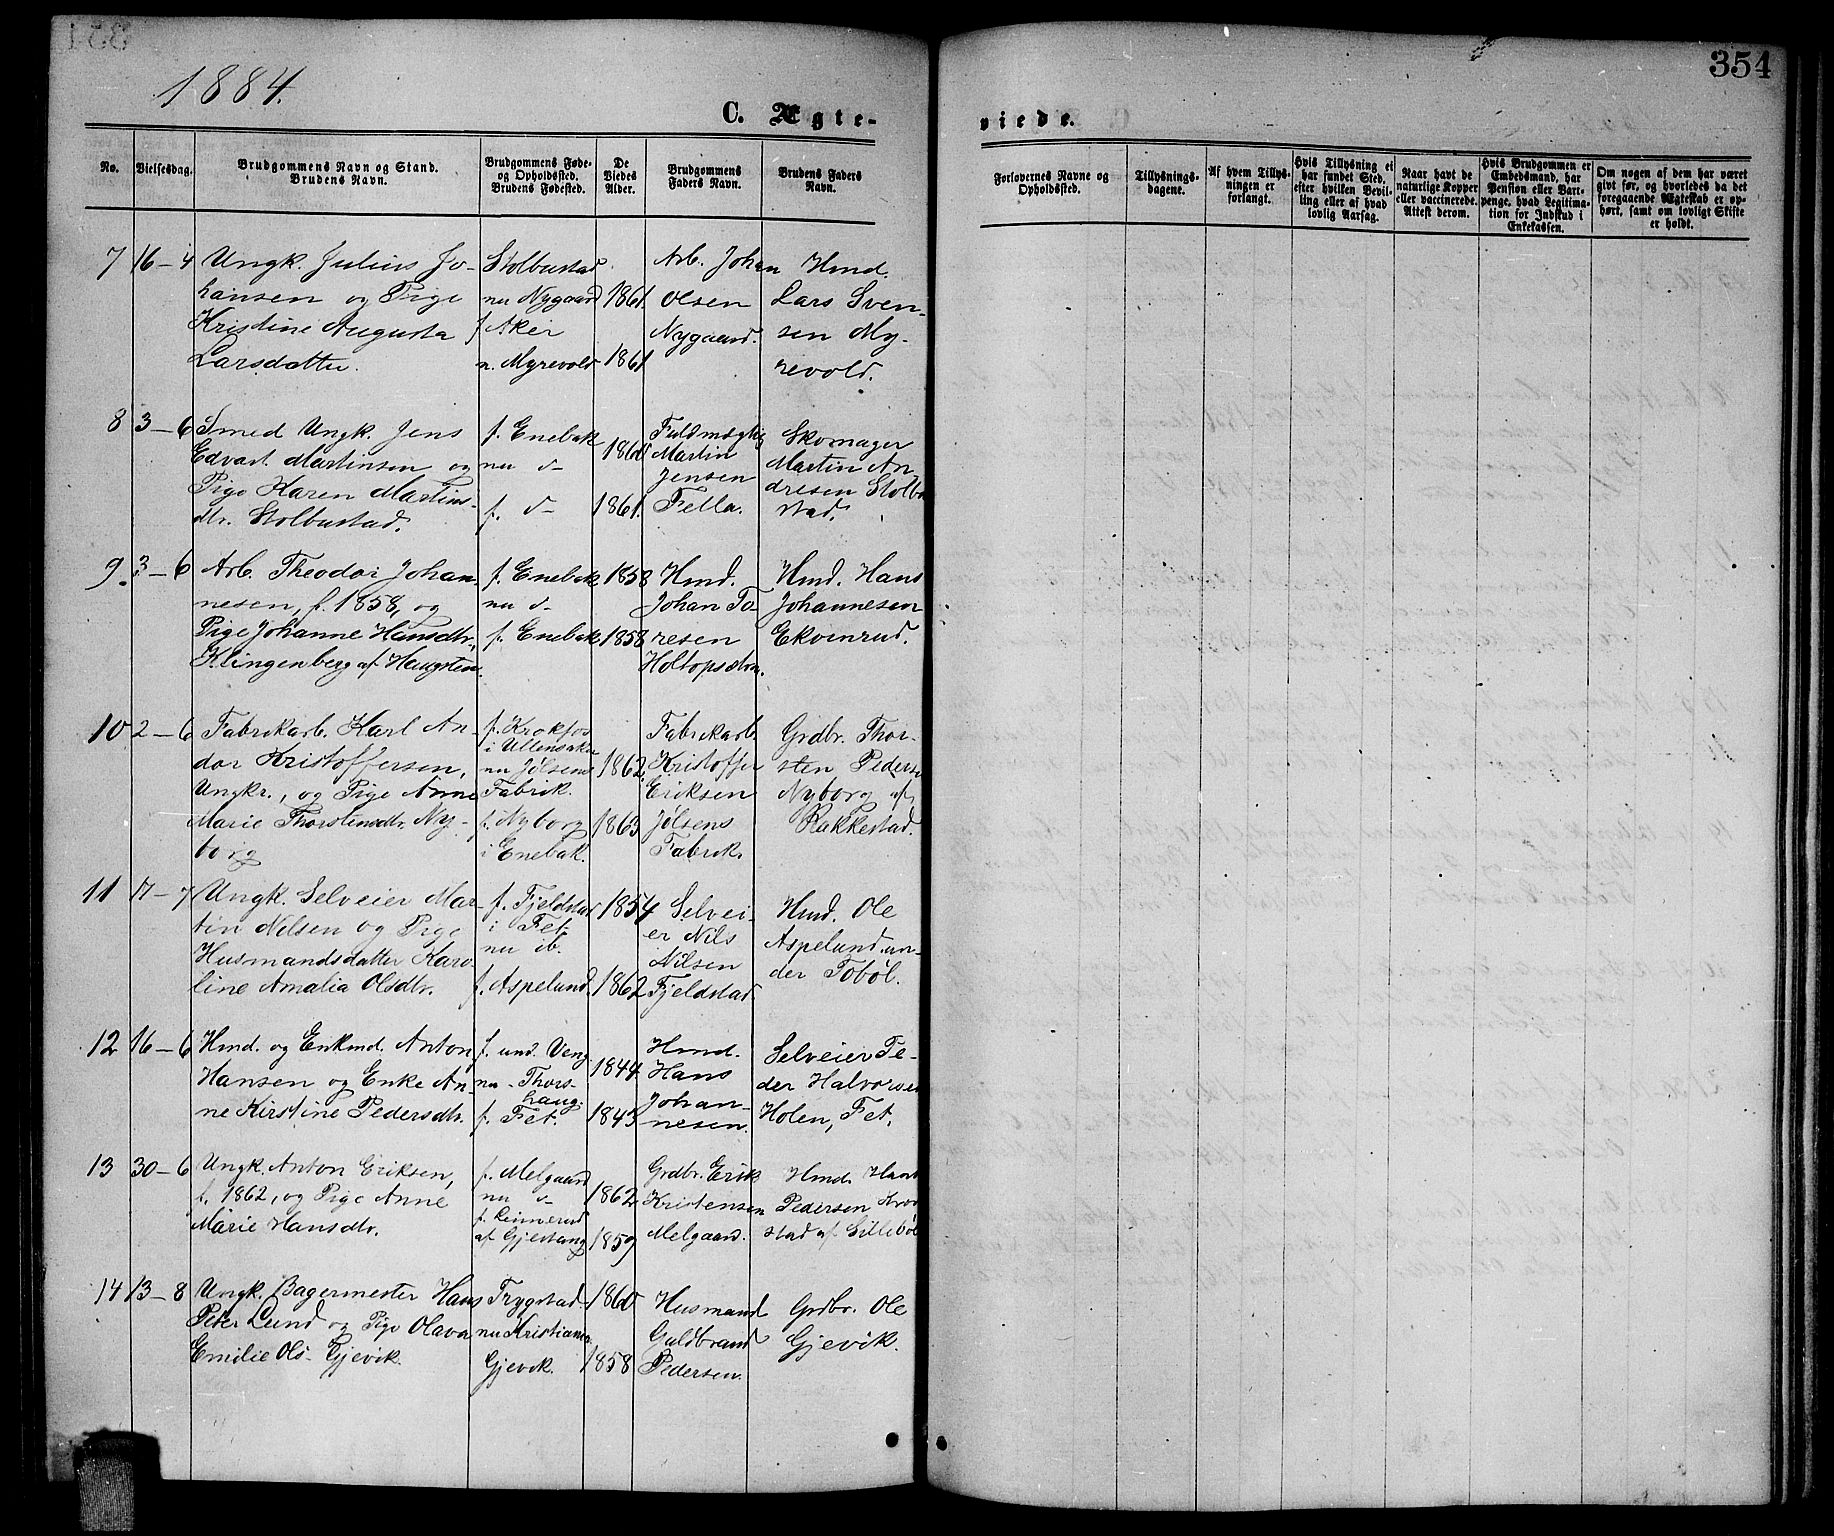 354
1884.
C. Ægte-
viede.
No.
Vielsesdag.
Brudgommens Navn og Stand.
Brudens Navn.
Brudgommens Føde-
og Opholdssted.
Brudens Fødested.
De
Viedes
Alder.
Brudgommens
Faders Navn.
Brudens Faders
Navn.
Forlovernes Navne og
Opholdssted.
Tillysnings-
dagene.
Af hvem Tillys-
ningen er
forlangt.
Hvis Tillysning ei
har fundet Sted,
efter hvilken Bevil-
ling eller af hvad
lovlig Aarsag.
Naar havt de
naturlige Kopper
eller vaccinerede.
Attest derom.
Hvis Brudgommen er
Embedsmand, har
Pension eller Vart-
penge, hvad Legitima-
tion for Indskud i
Enkekassen.
Om nogen af dem har været
givt før, og hvorledes da det
foregaaende Ægteskab er op-
hørt, samt om lovligt Skifte
er holdt.
7 16-4
Ungk. Julius Jo-
hansen og Pige
Kristine Augusta
Larsdatter.
Stolbustad
nu Nygaard
f Aker
n. Myrevold
1861
1861
Arb. Johan
Olsen
Nygaard.
Hmd.
Lars Sven-
sen My-
revold.
8 3-6
Smed Ungk. Jens
Edvart Martinsen og
Pige Karen Martins-
dtr. Stolbustad.
f. Enebak
nu d-
f. d-
1860
1861.
Fuldmægtig
Martin
Jensen
Fella.
Skomager
Martin An
dresen Stolbu
stad.
9. 3-6
Arb. Theodor Johan-
nesen, f. 1858, og
Pige Johanne Hansdtr.
Klingenberg af Haugsten.
f. Enebak
nu d-
f. Enebak
1858
1858
Hmd.
Johan To
resen
Holtopsetra.
Hmd. Hans
Johannesen
Ekvernrud.
10 2-6
Fabrikarb. Karl An-
dor Kristoffersen,
Ungkr., og Pige Anne
Marie Thorstensdtr. Ny-
borg
f. Krokfos
i Ullensaker
nu Jølsens
Fabrik.
f. Nyborg
i Enebak.
1862
1863
Fabrikarb
Kristoffer
Eriksen
Jølsens
Fabrik.
Grdbr. Thor-
sten Peders
Nyborg af
Rakkestad.
11 17-7
Ungk. Selveier Mar-
tin Nilsen og Pige
Husmandsdatter Karo
line Amalia Olsdtr.
f. Fjeldstad
i Fet
nu ib.
f. Aspelund.
1854
1862
Selvei-
er Nils
Nilsen
Fjeldstad
Hmd. Ole
Aspelund un-
der Tobøl.
12 16-6
Hmd. og Enkmd. Anton
Hansen og Enke An-
ne Kirstine Pedersdtr.
f. und. Veng
nu - Thors-
haug.
f. Fet.
1844
1843
Hmd.
Hans
Johan-
nesen.
Selveier Pe-
der Halvorsen
Holen, Fet.
13 30-6
Ungk. Anton Eriksen,
f. 1862, og Pige Anne
Marie Hansdtr.
f. Melgaard
nu d-
af Gjestang
1862
1859
Grdbr. Erik
Kristensen
Melgaard.
Hmd. Hans
Pedersen
stad af Lillebøl
14 13-8
Ungk. Bagermester Hans
Peter Lund og Pige Olava
Emilie Ols- Gjevik.
Trygstad
nu Kristiania
Gjevik.
1860
1858
Husmand
Guldbrand
Pedersen.
Grdbr. Ole
Gjevik.